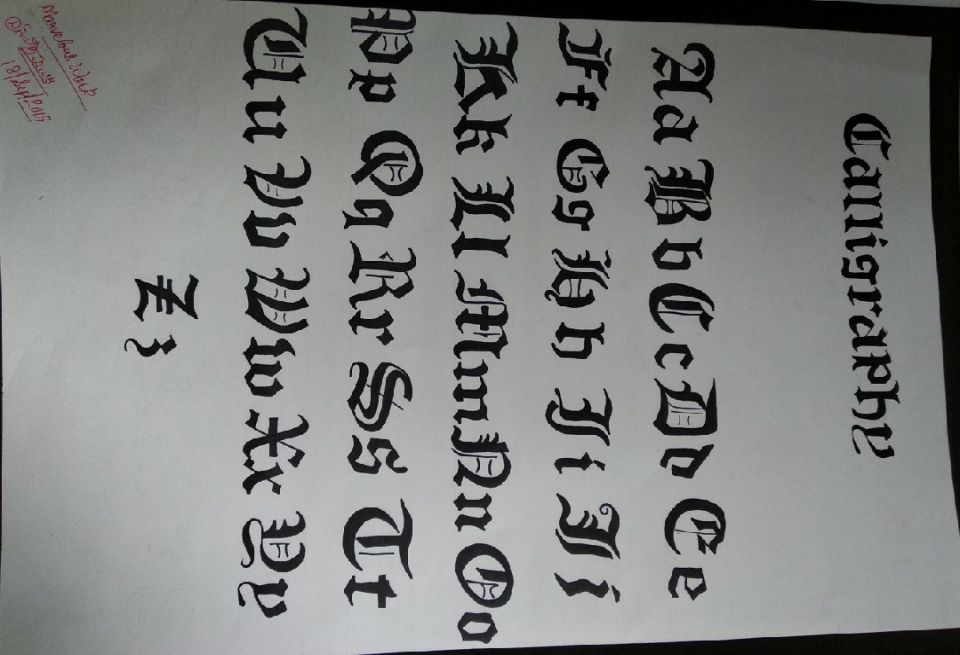 Calligraphy
Aa Bb Cc Dd Ee
Ff Gg Hh Ii Jj
Kk Ll Mm Nn Oo
Pp Qq Rr Ss Tt
Uu Vv Ww Xx Yy
Zz
Marvelous work